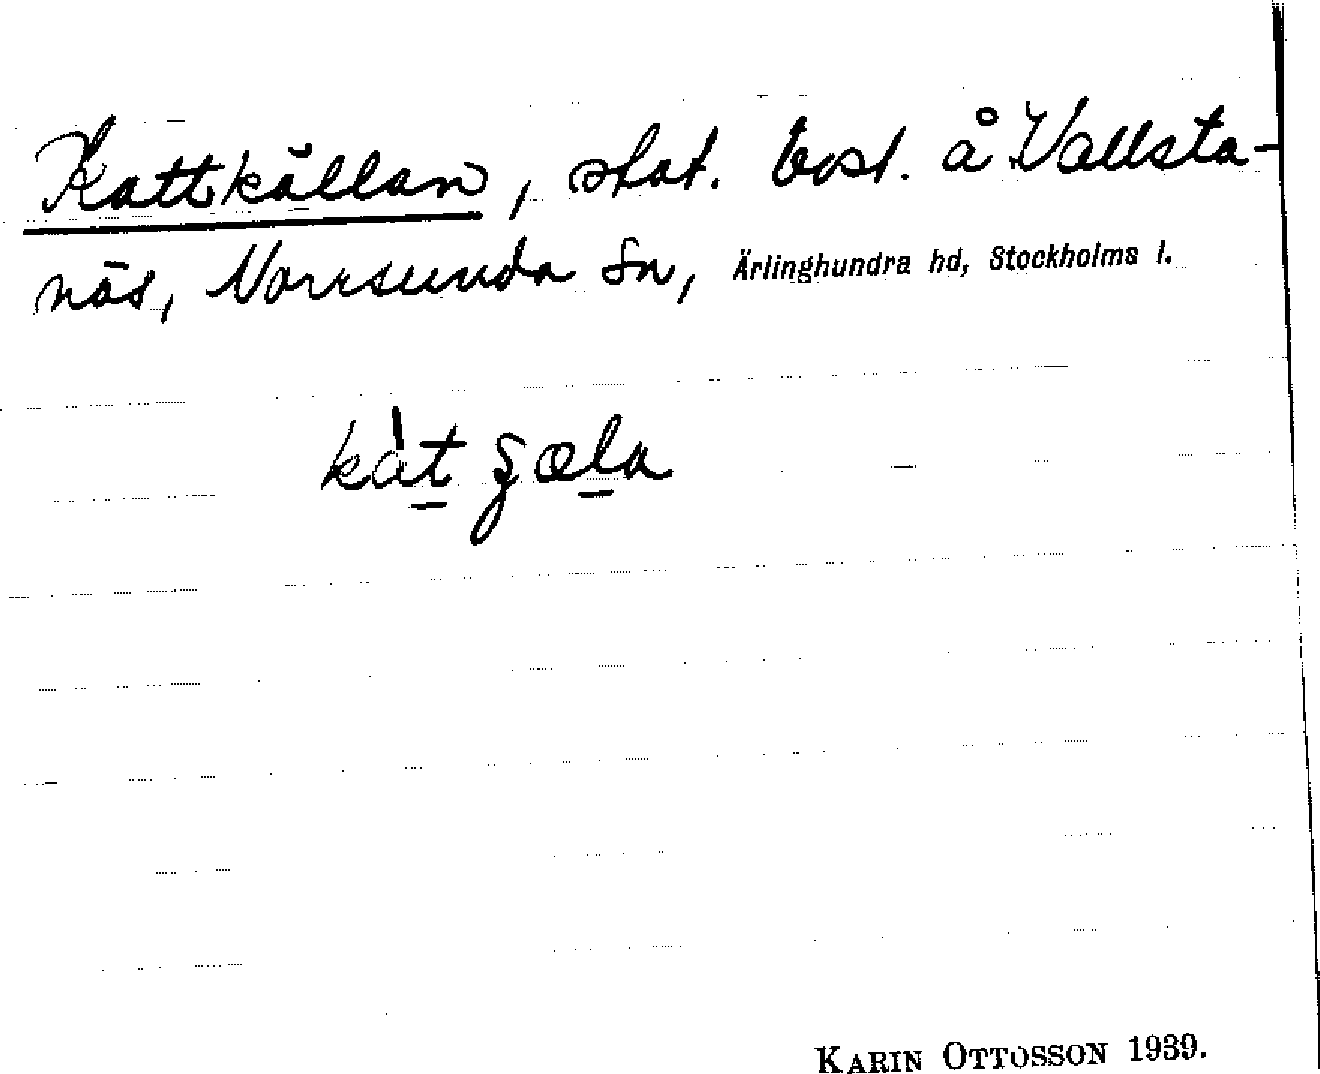 Kattkällan, stat. bost. å Vallsta-
näs, Norrsunda Sn, Ärlinghundra hd, Stockholms l.
kàt̠ ʂæl̠a
KARIN OTTOSSON 1939.